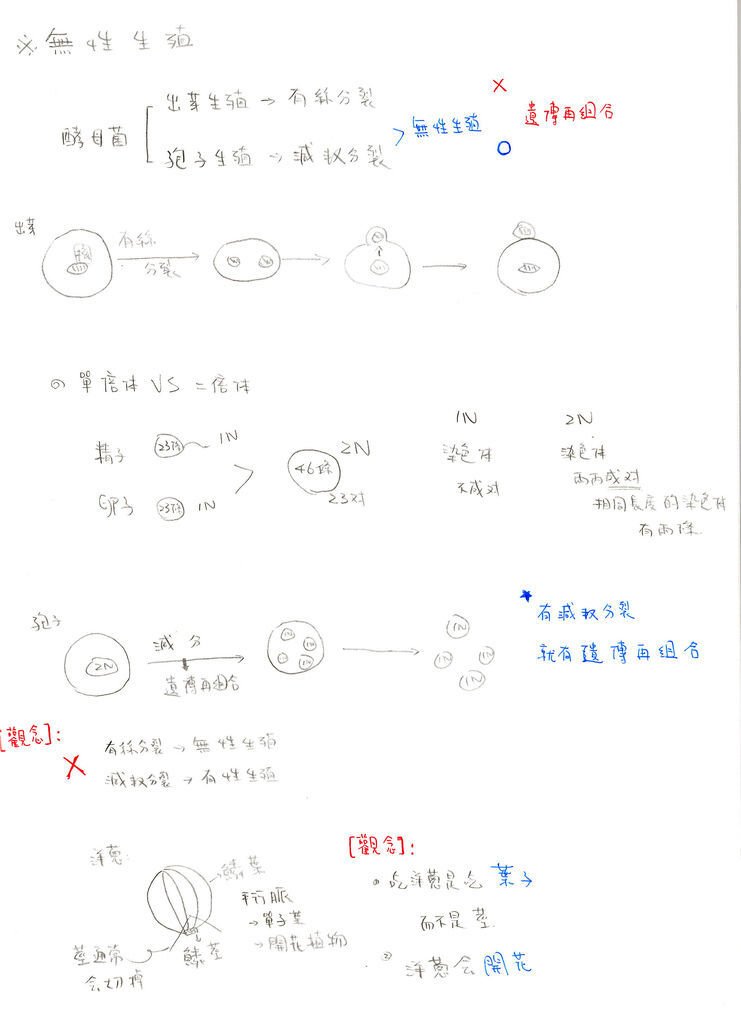 ※無性生殖
酵母菌
出芽生殖→有絲分裂
孢子生殖→減數分裂
>無性生殖
X
遺傳再組合
O
出芽
核
有絲
分裂
單倍体 VS 二倍体
精子 23條 1N
卵子 23條 1N
46條 2N
23対
1N
染色体
不成対
2N
染色体
兩兩成対
相同長度的染色体
有兩條
孢子
2N
減分
遺傳再組合
1N
1N
1N
1N
1N
1N
1N
★有減數分裂
就有遺傳再組合
[觀念]:
X
有絲分裂→無性生殖
減數分裂→有性生殖
洋蔥:
鱗葉
平行脈
→單子葉
→開花植物
鱗莖
莖通常
会切掉
[觀念]:
吃洋蔥是吃 葉子
而不是莖.
洋蔥会開花